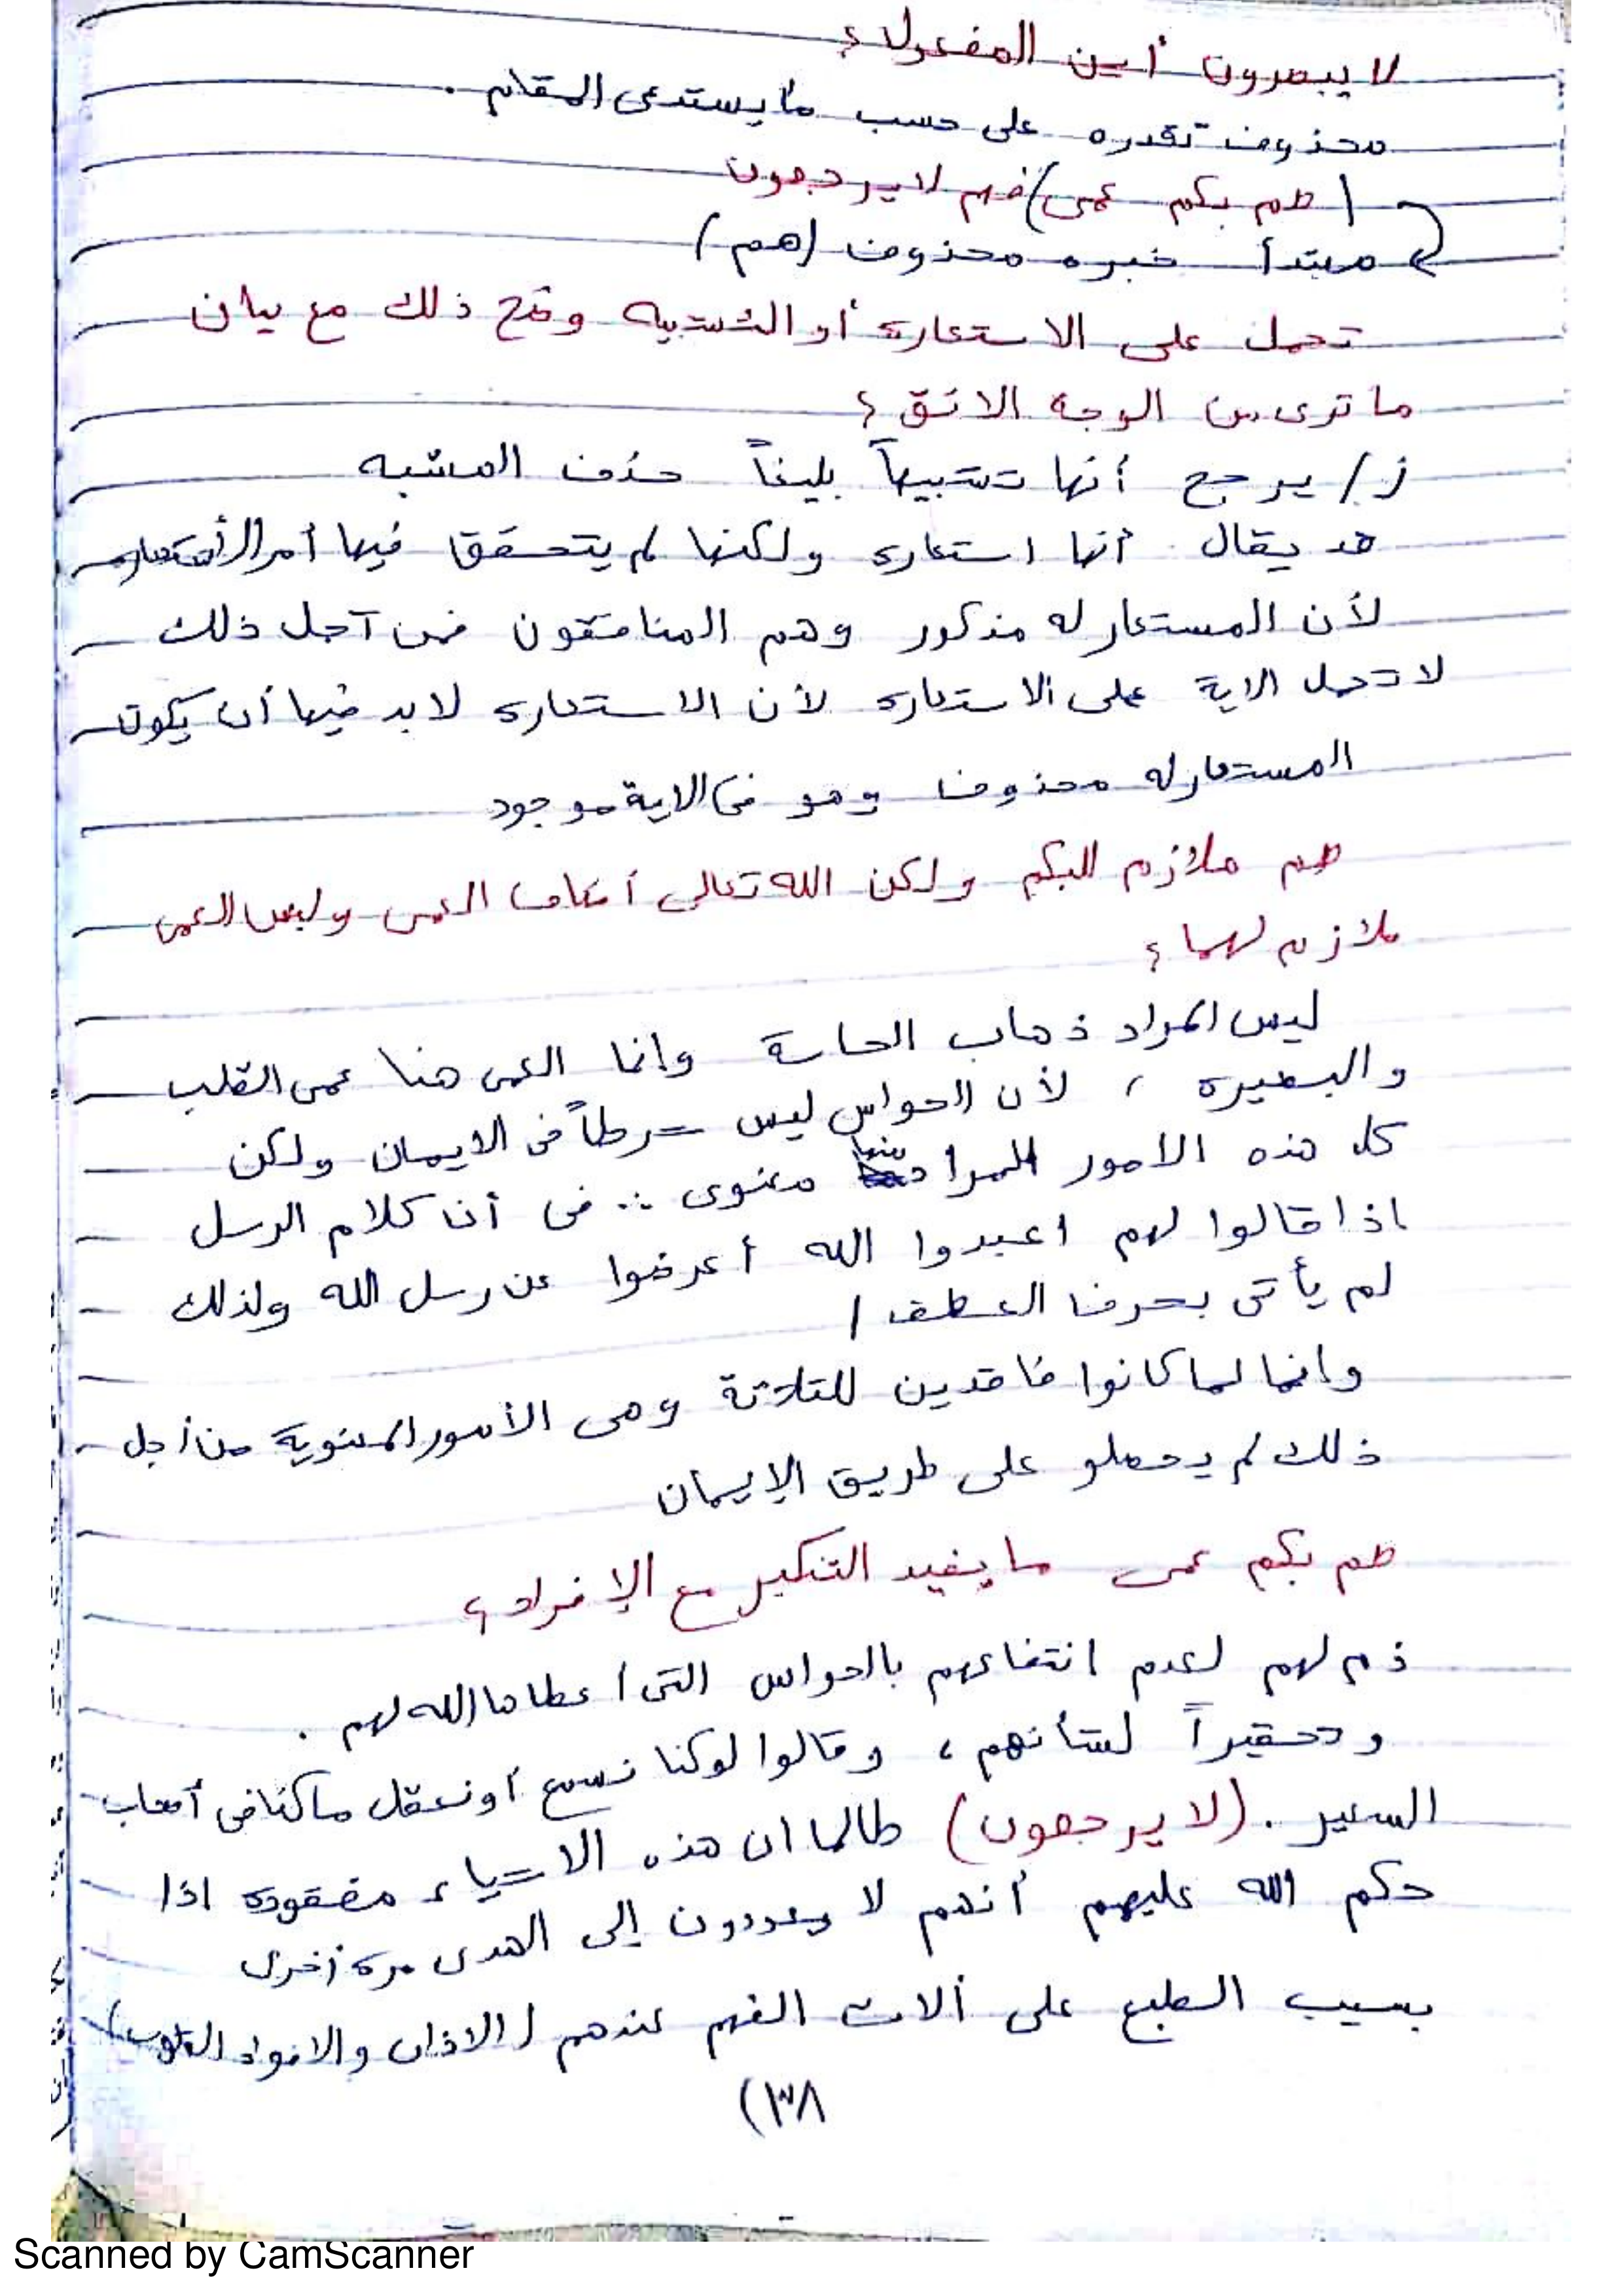 لا يبصرون أين المفعول؟
محذوف تقدره على حسب ما يستدعى المقام.
(صم بكم عمى) فهم لا يرجعون
مبتدأ خبره محذوف (هم)
تحمل على الاستعارة أو التشبيه وضح ذلك مع بيان
ما ترى من الوجه الادق؟
ز/ يرجح أنها تشبيهاً بليغاً حذف المشبه
قد يقال أنها استعارة ولكنها لم يتحقق فيها أمر الأستعاره
لأن المستعار له مذكور وهم المنافقون فمن آجل ذلك
لا تحمل الاية على الاستعارة لأن الاستعارة لا بد فيها أن يكون
المستعار له محذوف وهو فى الاية موجود
صم ملازم للبكم ولكن الله تعالى أضاف العمى وليس العمى
ملازم لهما؟
ليس المراد ذهاب الحاسة وانما العمى هنا عمى القلب
والبصيره، لأن الحواس ليس شرطاً فى الايمان ولكن
كل هذه الامور المراد منها معنوى ∴ فى أن كلام الرسل
اذا قالوا لهم اعبدوا الله أعرضوا عن رسل الله ولذلك
لم يأتى بحرف العطف /
وانما لما كانوا فاقدين للثلاثة وهى الأمور المعنوية من أجل
ذلك لم يحصلو على طريق الإيمان
صم بكم عمى ما يفيد التنكير مع الإفراد؟
ذم لهم لعدم انتفاعهم بالحواس التى اعطاها الله لهم.
وتحقيراً لشأنهم، وقالوا لو كنا نسمع أو نعقل ما كنا فى أصحاب
السعير. (لا يرجعون) طالما ان هذه الاشياء مفقودة اذا
حكم الله عليهم أنهم لا يعودون إلى الهدى مرة أخرى
بسبب الطبع على ألات الفهم عندهم (الاذان والافواه القلوب)
(٣٨
Scanned by CamScanner